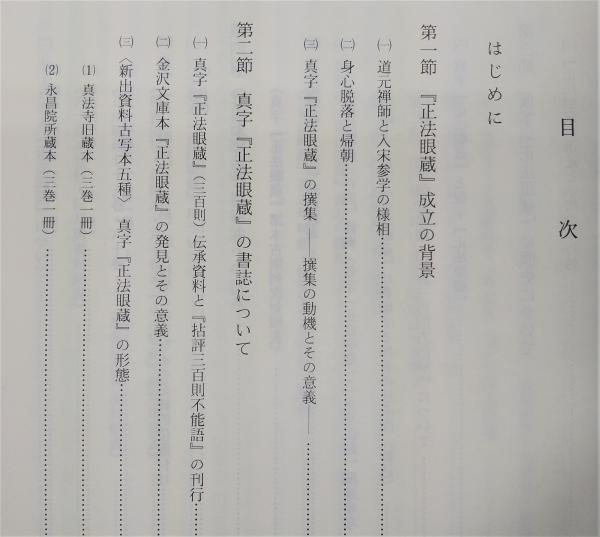 目次
はじめに
第一節 『正法眼蔵』成立の背景
㈠ 道元禅師と入宋参学の様相
㈡ 身心脱落と帰朝
㈢ 真字『正法眼蔵』の撰集――撰集の動機とその意義――
第二節 真字『正法眼蔵』の書誌について
㈠ 真字『正法眼蔵』（三百則）伝承資料と『拈評三百則不能語』の刊行
㈡ 金沢文庫本『正法眼蔵』の発見とその意義
㈢ 〈新出資料古写本五種〉 真字『正法眼蔵』の形態
⑴ 真法寺旧蔵本（三巻一冊）
⑵ 永昌院所蔵本（三巻一冊）